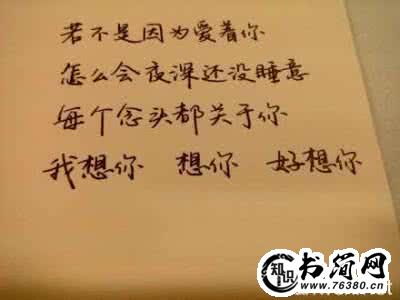 若不是因为爱着你
怎么会夜深还没睡意
每个念头都关于你
我想你 想你 好想你
知识
书简网
www.76380.cn